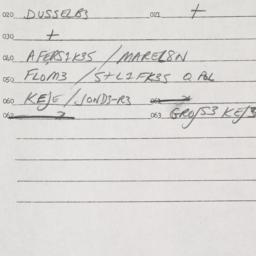 020 DUSSELB3 021 +
030 +
040 AFERS1K35 / MAREL8N
050 FLOM3 / S+L1FK35 Q
060 KEJE / JOND3-R3
062 063 GRO/S3 KEJ3